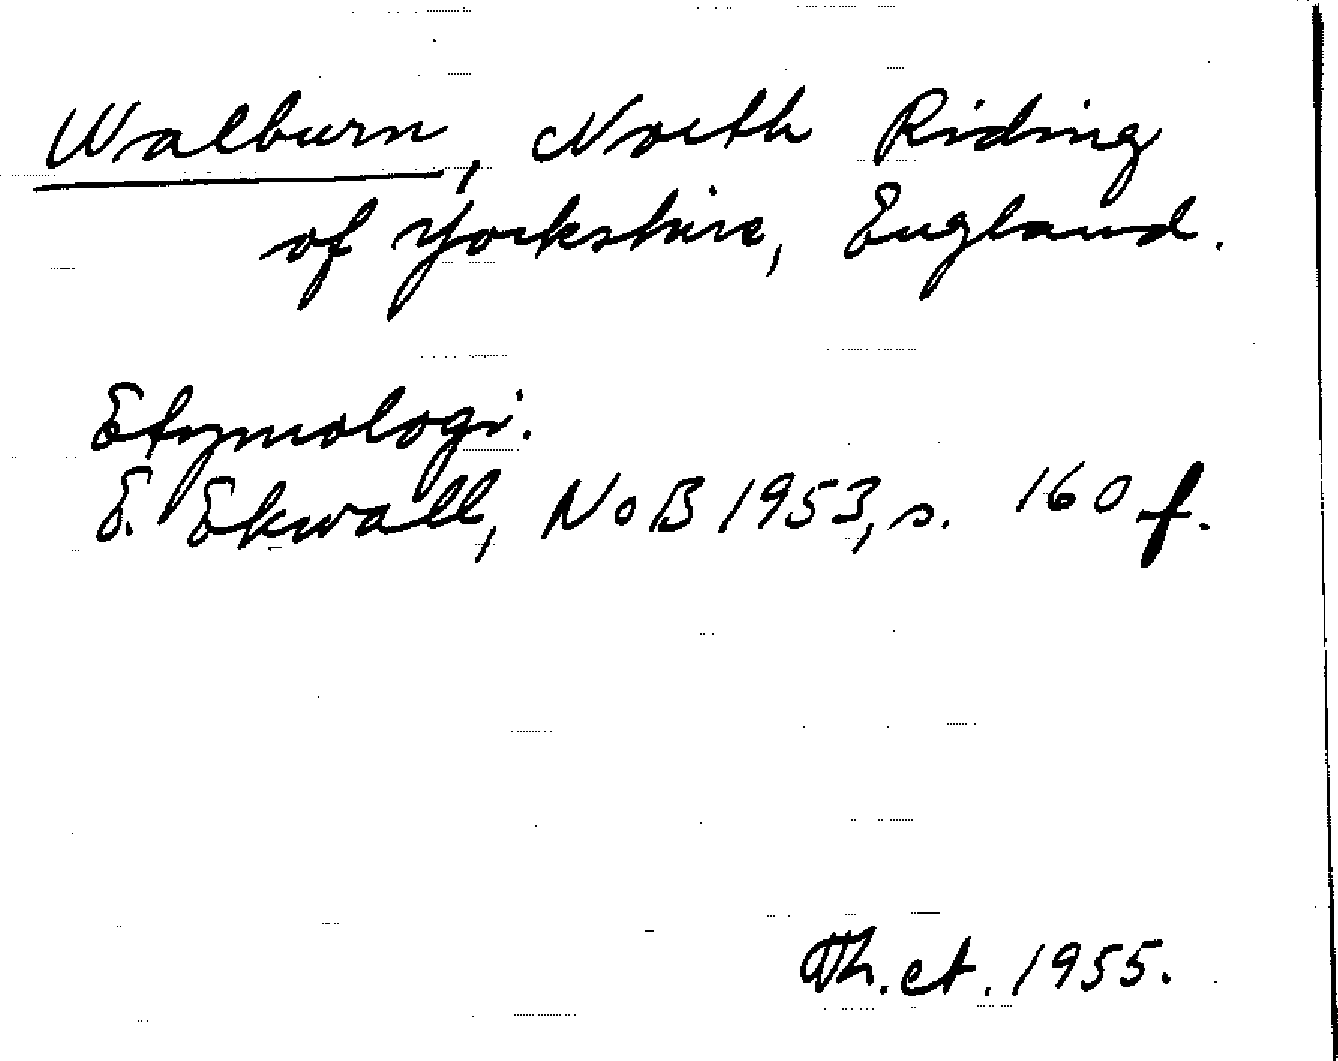 Walburn, North Riding
of Yorkshire, England.
Etymologi.
E. Ekwall, NoB 1953, s. 160 f.
Th. 1955.